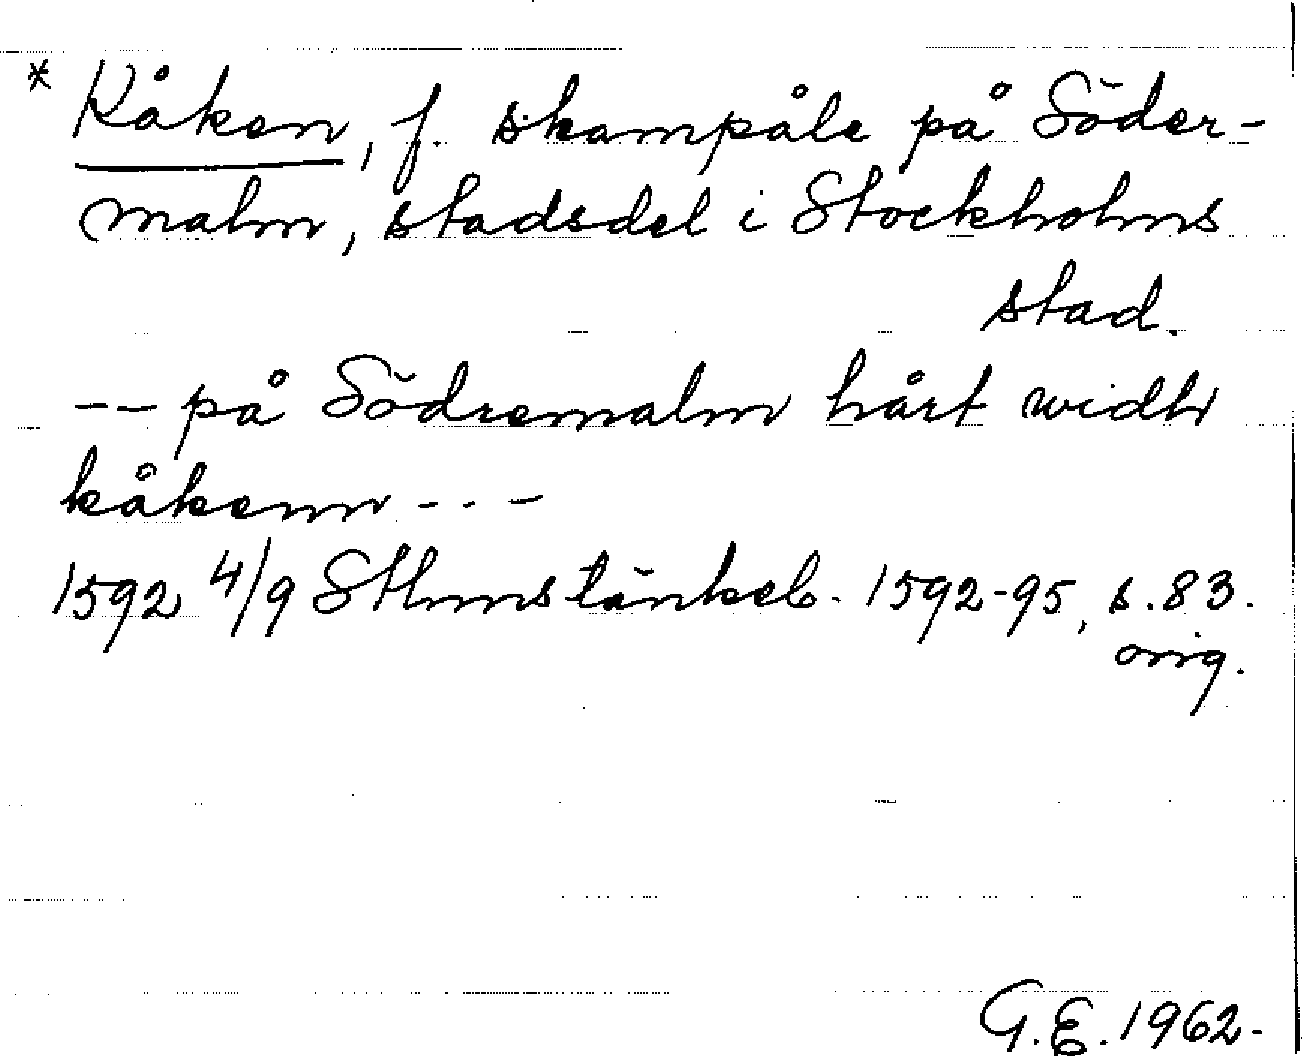 * Kåken, f. skampåle på Söder-
malm, stadsdel i Stockholms
stad.
-- på Södremalm hårt widh
kåkenn - . . -
1592 4/9 Sthms tänkeb. 1592-95, s. 83.
orig.
G.E. 1962-